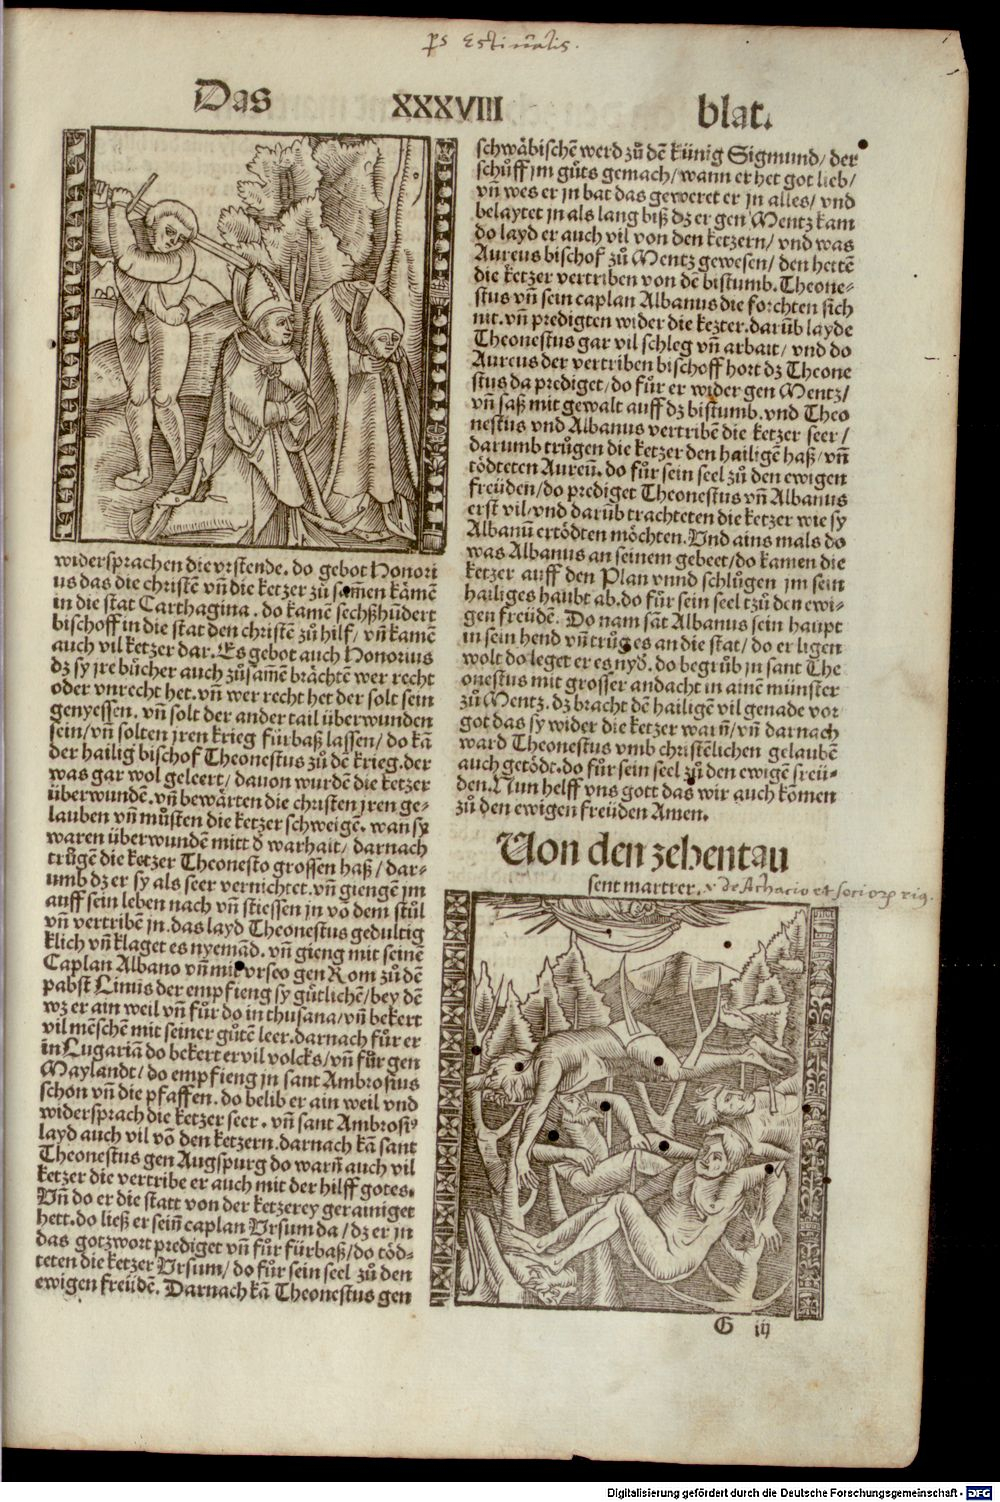 ps Estiualis.
Das XXXVIII blat.
widersprachen die vrstende. do gebot Honori
us das die christē vñ die ketzer zů samen kåmē
in die stat Carthagina. do kamē sechßhūdert
bischoff in die stat den christē zů hilf/ vñ kamē
auch vil ketzer dar. Es gebot auch Honorius
dz sy jre bůcher auch zůsamē bråchtē wer recht
oder vnrecht het. vñ wer recht het der solt sein
genyessen. vñ solt der ander tail überwunden
sein/ vñ solten jren krieg fürbaß lassen/ do kā
der hailig bischof Theonestus zů dē krieg. der
was gar wol geleert/ dauon wurdē die ketzer
überwundē. vñ bewårten die christen jren ge-
lauben vñ můsten die ketzer schweigē. wañ sy
waren überwundēn mitt d warhait/ darnach
trůgē die ketzer Theonesto grossen haß/ dar-
umb dz er sy als seer vernichtet. vñ giengē jm
auff sein leben nach vñ stiessen jn vō dem stůl
vñ vertribē jn. das layd Theonestus gedultig
klich vñ klaget es nyemād. vñ gieng mit seinē
Caplan Albano vñ mit vrseo gen Rom zů dē
pabst Linus der empfieng sy gůtlichē/ bey dē
wz er ain weil vñ fůr do in thusana/ vñ bekert
vil mēschē mit seiner gůtē leer. darnach fůr er
in Lugariā do bekert er vil volcks/ vñ fůr gen
Maylandt/ do empfieng jn sant Ambrosius
schon vñ die pfaffen. do belib er ain weil vnd
widersprach die ketzer seer. vñ sant Ambrosi⁹
layd auch vil vō den ketzern. darnach kā sant
Theonestus gen Augspurg do warñ auch vil
ketzer die vertribe er auch mit der hilff gotes.
Vñ do er die statt von der ketzerey gerainiget
hett. do ließ er seiñ caplan Vrsum da/ dz er jn
das gotzwort prediget vñ fůr fürbaß/ do tőd-
teten die ketzer Vrsum/ do fůr sein seel zů den
ewigen freüdē. Darnach kā Theonestus gen
schwåbischē werd zů dē künig Sigmund/ der
schůff jm gůts gemach/ wann er het got lieb/
vñ wes er jn bat das geweret er jn alles/ vnd
belaytet jn als lang biß dz er gen Mentz kam
do layd er auch vil von den ketzern/ vnd was
Aureus bischof zů Mentz gewesen/ den hettē
die ketzer vertriben von dē bistumb. Theone-
stus vñ sein caplan Albanus die forchten sich
nit. vñ predigten wider die kezter. darūb layde
Theonestus gar vil schleg vñ arbait/ vnd do
Aureus der vertriben bischoff hort dz Theone
stus da prediget/ do fůr er wider gen Mentz/
vñ saß mit gewalt auff dz bistumb. vnd Theo
nestus vnd Albanus vertribē die ketzer seer/
darumb trůgen die ketzer den hailigē haß/ vñ
tődteten Aureū. do fůr sein seel zů den ewigen
freüden/ do prediget Theonestus vñ Albanus
erst vil/ vnd darūb trachteten die ketzer wie sy
Albanū ertődten mőchten. Vnd ains mals do
was Albanus an seinem gebeet/ do kamen die
ketzer auff den Plan vnnd schlůgen jm sein
hailiges haubt ab. do fůr sein seel tzů den ewi-
gen freüdē. Do nam sāt Albanus sein haupt
in sein hend vñ trůg es an die stat/ do er ligen
wolt do leget er es nyd. do begrůb jn sant The
onestus mit grosser andacht in ainē münster
zů Mentz. dz bracht dē hailigē vil genade vor
got das sy wider die ketzer warñ/ vñ darnach
ward Theonestus vmb christēlichen gelaubē
auch getődt. do fůr sein seel zů den ewigē freü-
den. Nun helff vns gott das wir auch kőmen
zů den ewigen freüden Amen.
Von den zehentau
sent martrer. v de Achacio et sociorꝫ
G iij
Digitalisierung gefördert durch die Deutsche Forschungsgemeinschaft - DFG